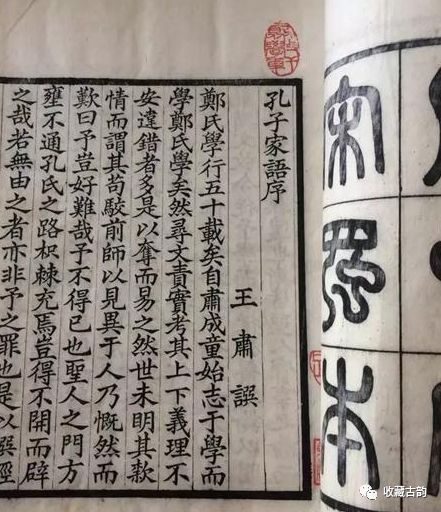 宋蜀本
孔子家語序
王肅譔
鄭氏學行五十載矣自肅成童始志于學而
學鄭氏學矣然尋文責實考其上下義理不
安違錯者多是以奪而易之然世未明其款
情而謂其苟駮前師以見異于人乃慨然而
歎曰予豈好難哉予不得已也聖人之門方
壅不通孔氏之路枳棘充焉豈得不開而辟
之哉若無由之者亦非予之罪也是以撰經
收藏古韵